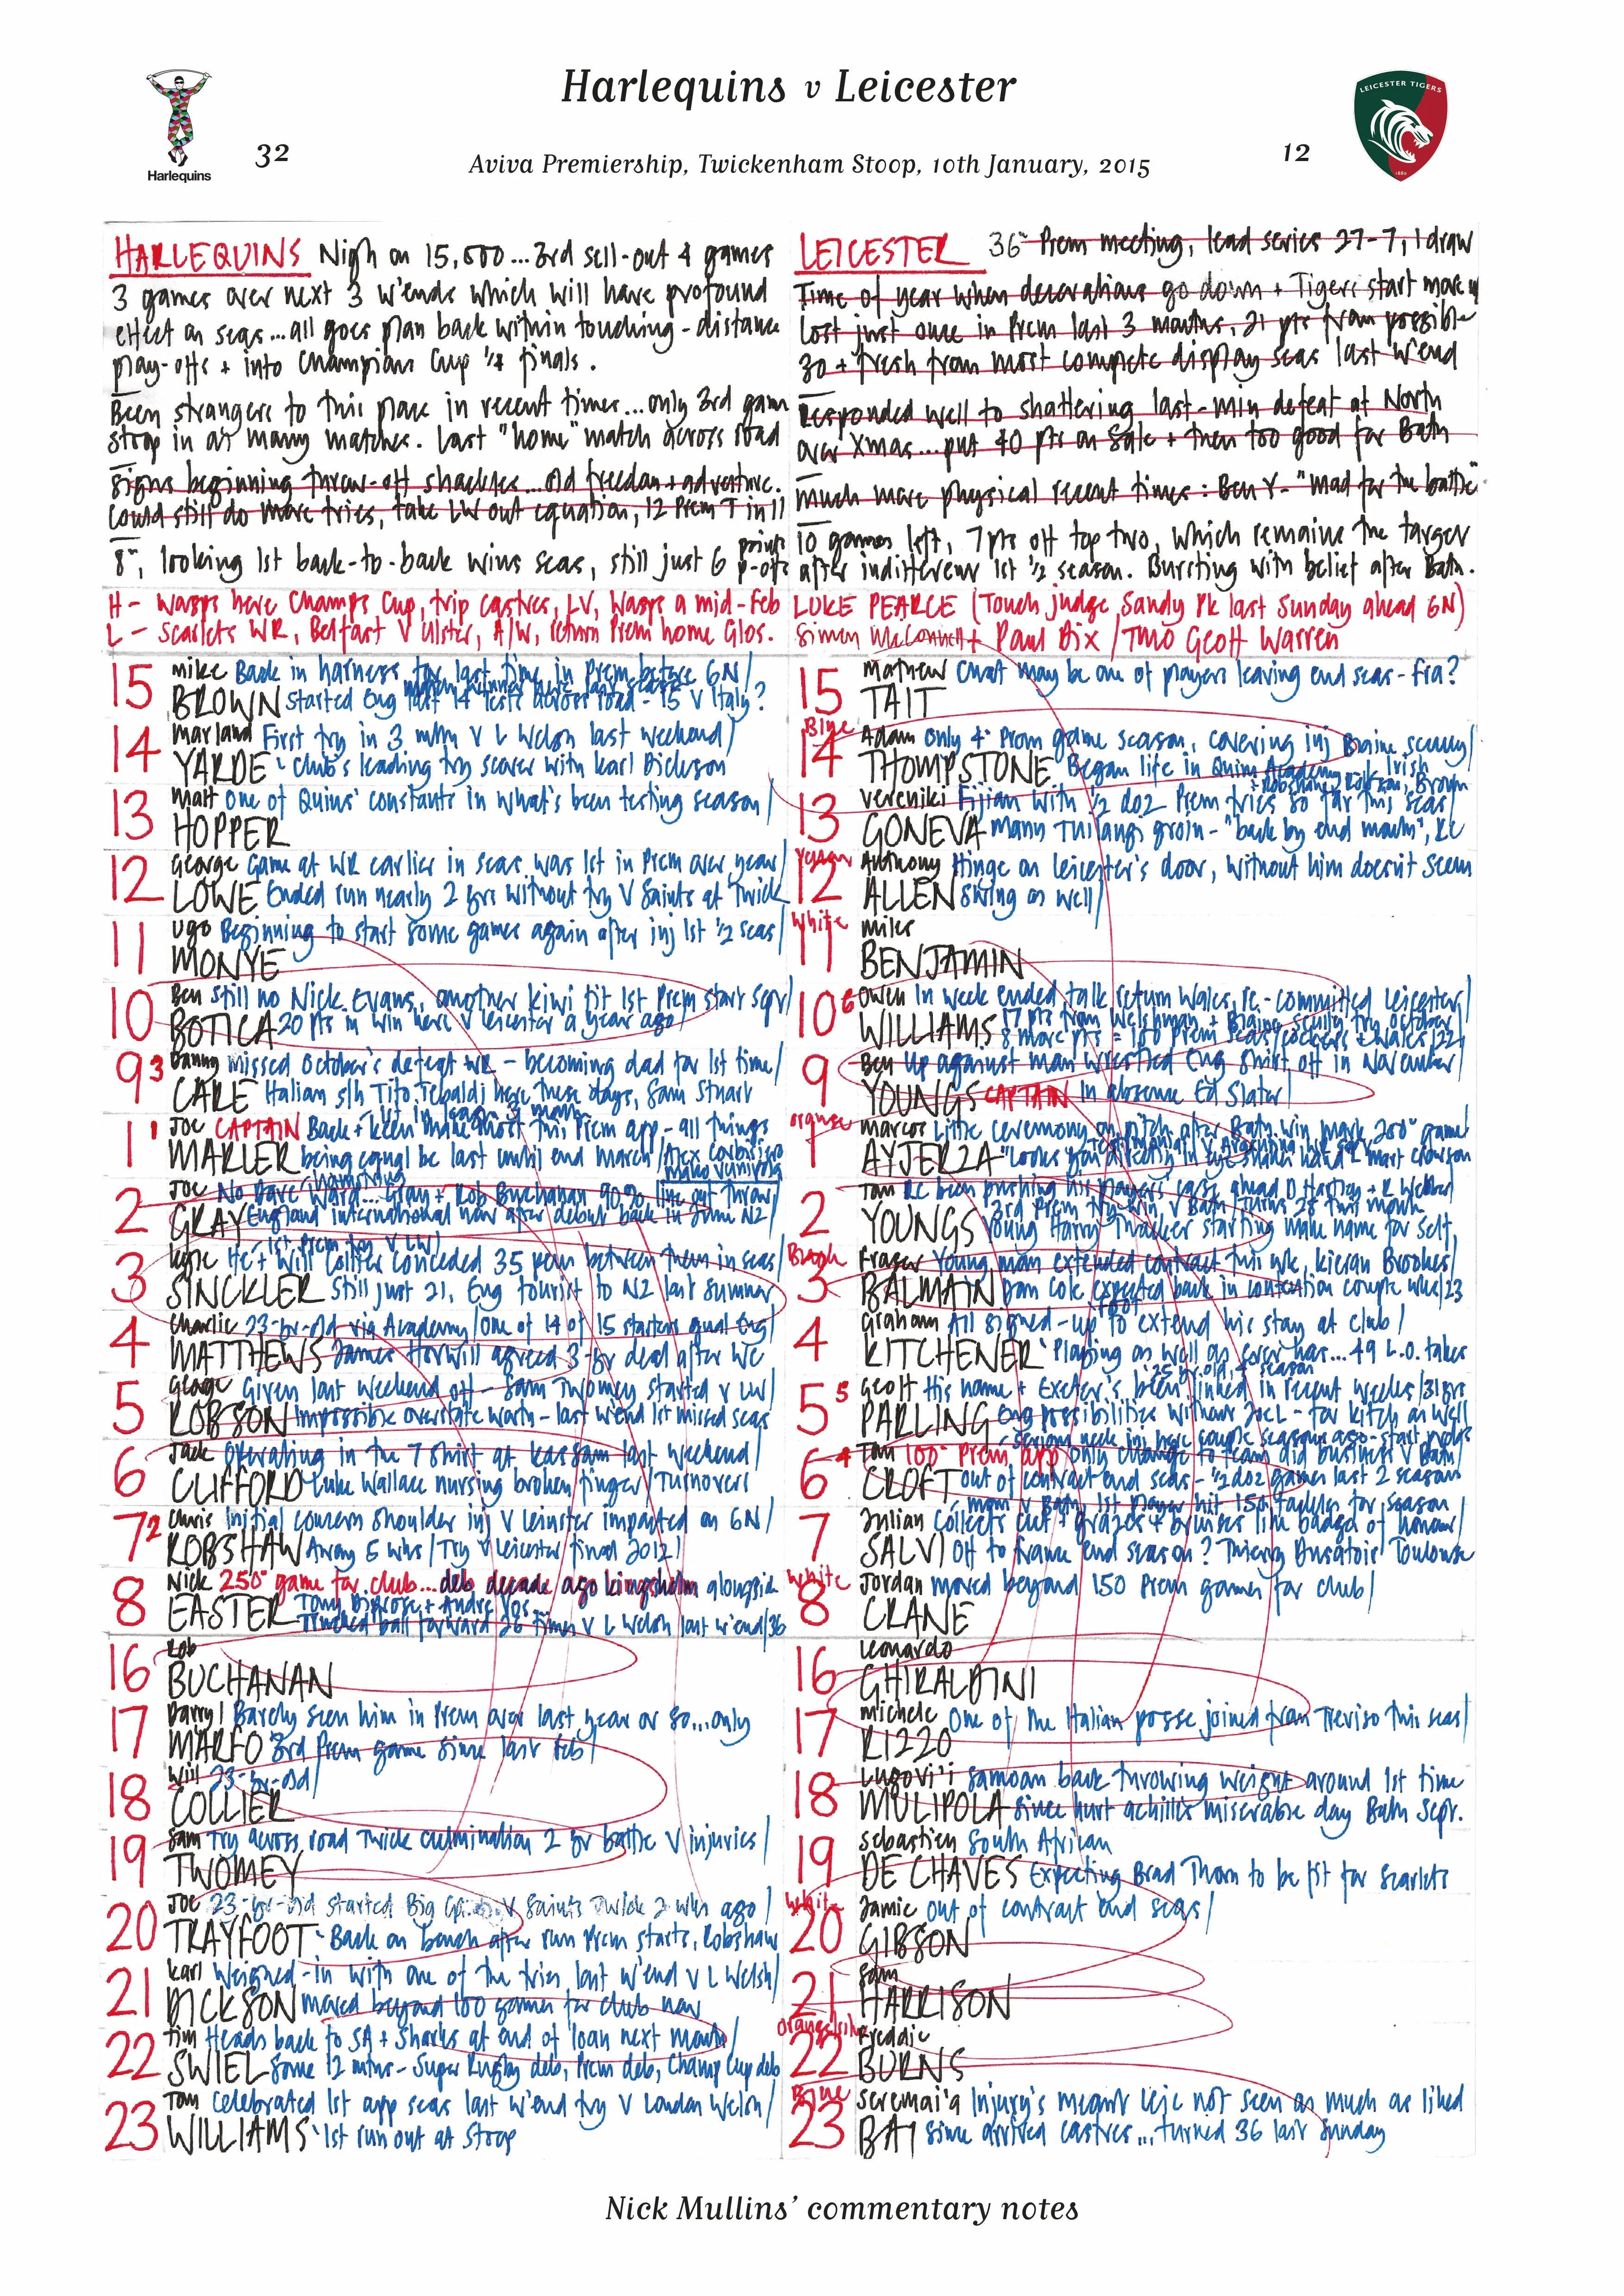 Harlequins v Leicester
LEICESTER TIGERS
1880
Harlequins
32
Aviva Premiership, Twickenham Stoop, 10th January, 2015
12
HARLEQUINS Nigh on 15,000...3rd sell-out 4 games
3 games over next 3 w'ends which will have profound
effect on seas...all goes plan back within touching-distance
play-offs + into Champions Cup 1/4 finals.
Been strangers to this place in recent times...only 3rd game
stoop in as many matches. Last "home" match across road
Signs beginning throw-off shackles...old freedom + adventure.
Could still do more tries, take LW out equation, 12 Prem T in 11
8th, looking 1st back-to-back wins seas, still just 6 points p-offs
H- Wasps here Champs Cup, trip Castres, LV, Wasps a mid-Feb
L- Scarlets WR, Belfast V Ulster, A/W, return Prem home Glos.
LEICESTER 36th Prem meeting, lead series 27-7, 1 draw
Time of year when decorations go down + Tigers start move up
Lost just once in Prem last 3 months, 21 pts from possible
30 + fresh from most complete display seas last w'end
Responded well to shattering last-min defeat at North
over Xmas...put 40 pts on Sale + then too good for Bath
Much more physical recent times: Ben Y- "Mad for the battle"
10 games left, 7pts off top two, which remains the target
after indifferent 1st 1/2 season. Bursting with belief after Bath.
LUKE PEARCE (Touch judge Sandy Pk last Sunday ahead GN)
Simon McConnell + Paul Dix / TMO Geoff Warren
15 Mike BROWN Back in harness for last time in Prem before 6N/
Started Eng last 14 tests across road - 15 v Italy?
14 Marland YARDE First try in 3 mths V L Welsh last weekend/
Club's leading try scorer with Karl Dickson
13 Matt HOPPER One of Quins' constants in what's been testing season/
12 George LOWE Game at WR earlier in seas was 1st in Prem over year/
Ended run nearly 2 yrs without try V Saints at Twick
11 Ugo MONYE Beginning to start some games again after inj 1st 1/2 seas/
10 Ben BOTICA Still no Nick Evans, another kiwi fit 1st Prem start Sept/
20 pts in win here V Leicester a year ago/
9 3 Danny CARE Missed October's defeat WR - becoming dad for 1st time/
Italian s/h Tito Tebaldi here these days, Sam Stuart
1 1 Joe MARLER CAPTAIN Back + keen make most this Prem app - all things
being equal be last until end March/Alex Corbisiero
Mako Vunipola
2 Joe GRAY No Dave Ward... Gray + Rob Buchanan 90% line out throw/
hamstring
England international now after debut back in June NZ/
3 Kyle SINCKLER He + Will Collier conceded 35 pen between them in seas/
1st Prem try V LW/
Still just 21, Eng tourist to NZ last summer
4 Charlie MATTHEWS 23-yr-old via Academy/One of 14 of 15 starters qual Eng/
James Horwill agreed 3-yr deal after WC
5 George ROBSON Given last weekend off - Sam Twomey started V LW/
Impossible overstate worth - last w'end 1st missed seas
6 Jack CLIFFORD Operating in the 7 shirt at Kassam last weekend/
Luke Wallace nursing broken finger/Turnovers
7 2 Chris ROBSHAW Initial concern shoulder inj V Leinster impacted on 6N/
Away 5 wks/Try V Leicester final 2012/
8 Nick EASTER 250th game for club...deb decade ago Kingsholm alongside
Tony Diprose + Andre Vos
Trucked ball forward 26 times V L Welsh last w'end/36
16 Rob BUCHANAN
17 Darryl MARFO Barely seen him in Prem over last year or so...only
3rd Prem game since last Feb/
18 Will COLLIER 23-yr-old/
19 Sam TWOMEY Try across road Twick culmination 2 yr battle V injuries/
20 Joe TRAYFOOT 23-yr-old started Big Game V Saints Twick 2 wks ago/
Back on bench after run Prem starts, Robshaw
21 Karl DICKSON Weighed-in with one of the tries last w'end V L Welsh/
Moved beyond 100 games for club now
22 Tim SWIEL Heads back to SA + Sharks at end of loan next month/
Some 12 mths - Super Rugby deb, Prem deb, Champ Cup deb
23 Tom WILLIAMS Celebrated 1st app seas last w'end try V London Welsh/
1st run out at Stoop
15 Mathew TAIT Chat may be one of players leaving end seas - Fra?
Blue
14 Adam THOMPSTONE Only 4th Prem game season, covering inj Blaine Scully/
Began life in Quins Academy
13 Vereniki GONEVA Fijian with 1/2 doz Prem tries so far this seas/
Manu Tuilangi groin - "back by end month", RC
12 Anthony ALLEN Hinge on Leicester's door, without him doesn't seem
swing as well/
White
11 Miles BENJAMIN
10 6 Owen WILLIAMS In week ended talk return Wales, RC - committed Leicester/
17 pts from Welshman + Blaine Scully try October/
8 more pts = 100 Prem seas/Cockers + Wales/22
9 Ben YOUNGS Up against man wrested Eng shirt off in November/
CAPTAIN In absence Ed Slater/
Orange
1 Marcos AYERZA Little ceremony on pitch after Bath win mark 200th game/
2 Tom YOUNGS RC been pushing his players case ahead D Hartley + R Webber
3rd Prem try win V Bath/Turns 28 this month
Young Harry Thacker starting make name for self.
Black
3 Fraser BALMAIN Young man extended contract this wk, Kieran Brookes/
Dan Cole expected back in contention couple wks/23
foot
4 Graham KITCHENER All signed-up to extend his stay at club/
Playing as well as ever has... 49 L.O. takes
25 yr old, 4th season
5 5 Geoff PARLING His name + Exeter's been linked in recent weeks/31yrs
Eng possibilities without Joe L - for Kitch as well
6 4 Tom CROFT 100th Prem app only change to team did business V Bath/
Out of contract end seas - 1/2 doz games last 2 seasons
7 Julian SALVI Collects cuts + grazes + bruises like badges of honour/
Off to France end season? Thierry Dusatoir Toulouse
White
8 Jordan CRANE Moved beyond 150 Prem games for club/
16 Leonardo GHIRALDINI
17 Michele RIZZO One of the Italian posse joined from Treviso this seas/
18 Logovi'i MULIPOLA Samoan back throwing weight around 1st time
since hurt achilles miserable day Bath Sept.
19 Sebastien DE CHAVES South African
Expecting Brad Thorn to be fit for Scarlets
White
20 Jamie GIBSON Out of contract end seas/
21 Sam HARRISON
22 Freddie BURNS
Blue
23 Seremai'a BAI Injury's meant Leic not seen as much as liked
since arrived Castres...turned 36 last Sunday
Nick Mullins' commentary notes